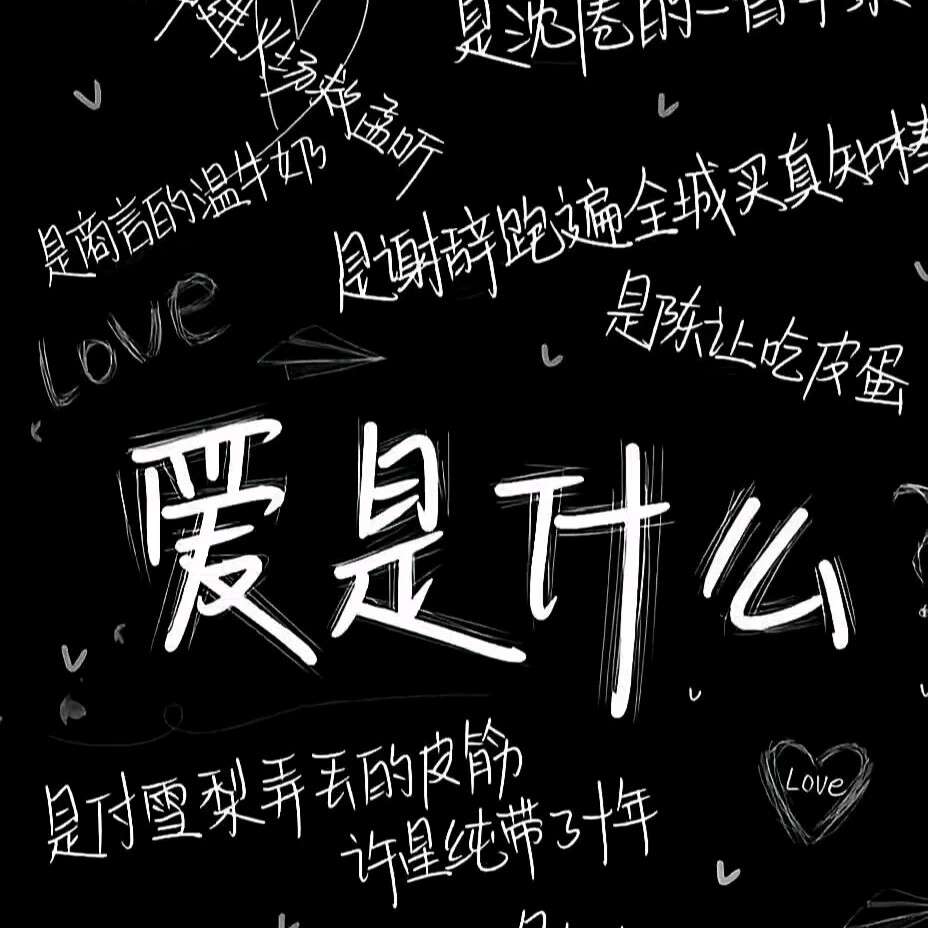 是沈卷的一首
孟听
是商言的温牛奶
是谢辞跑遍全城买真知棒
是陈让吃皮蛋
Love
爱是什么
是付雪梨弄丢的皮筋
许星纯带了十年
Love